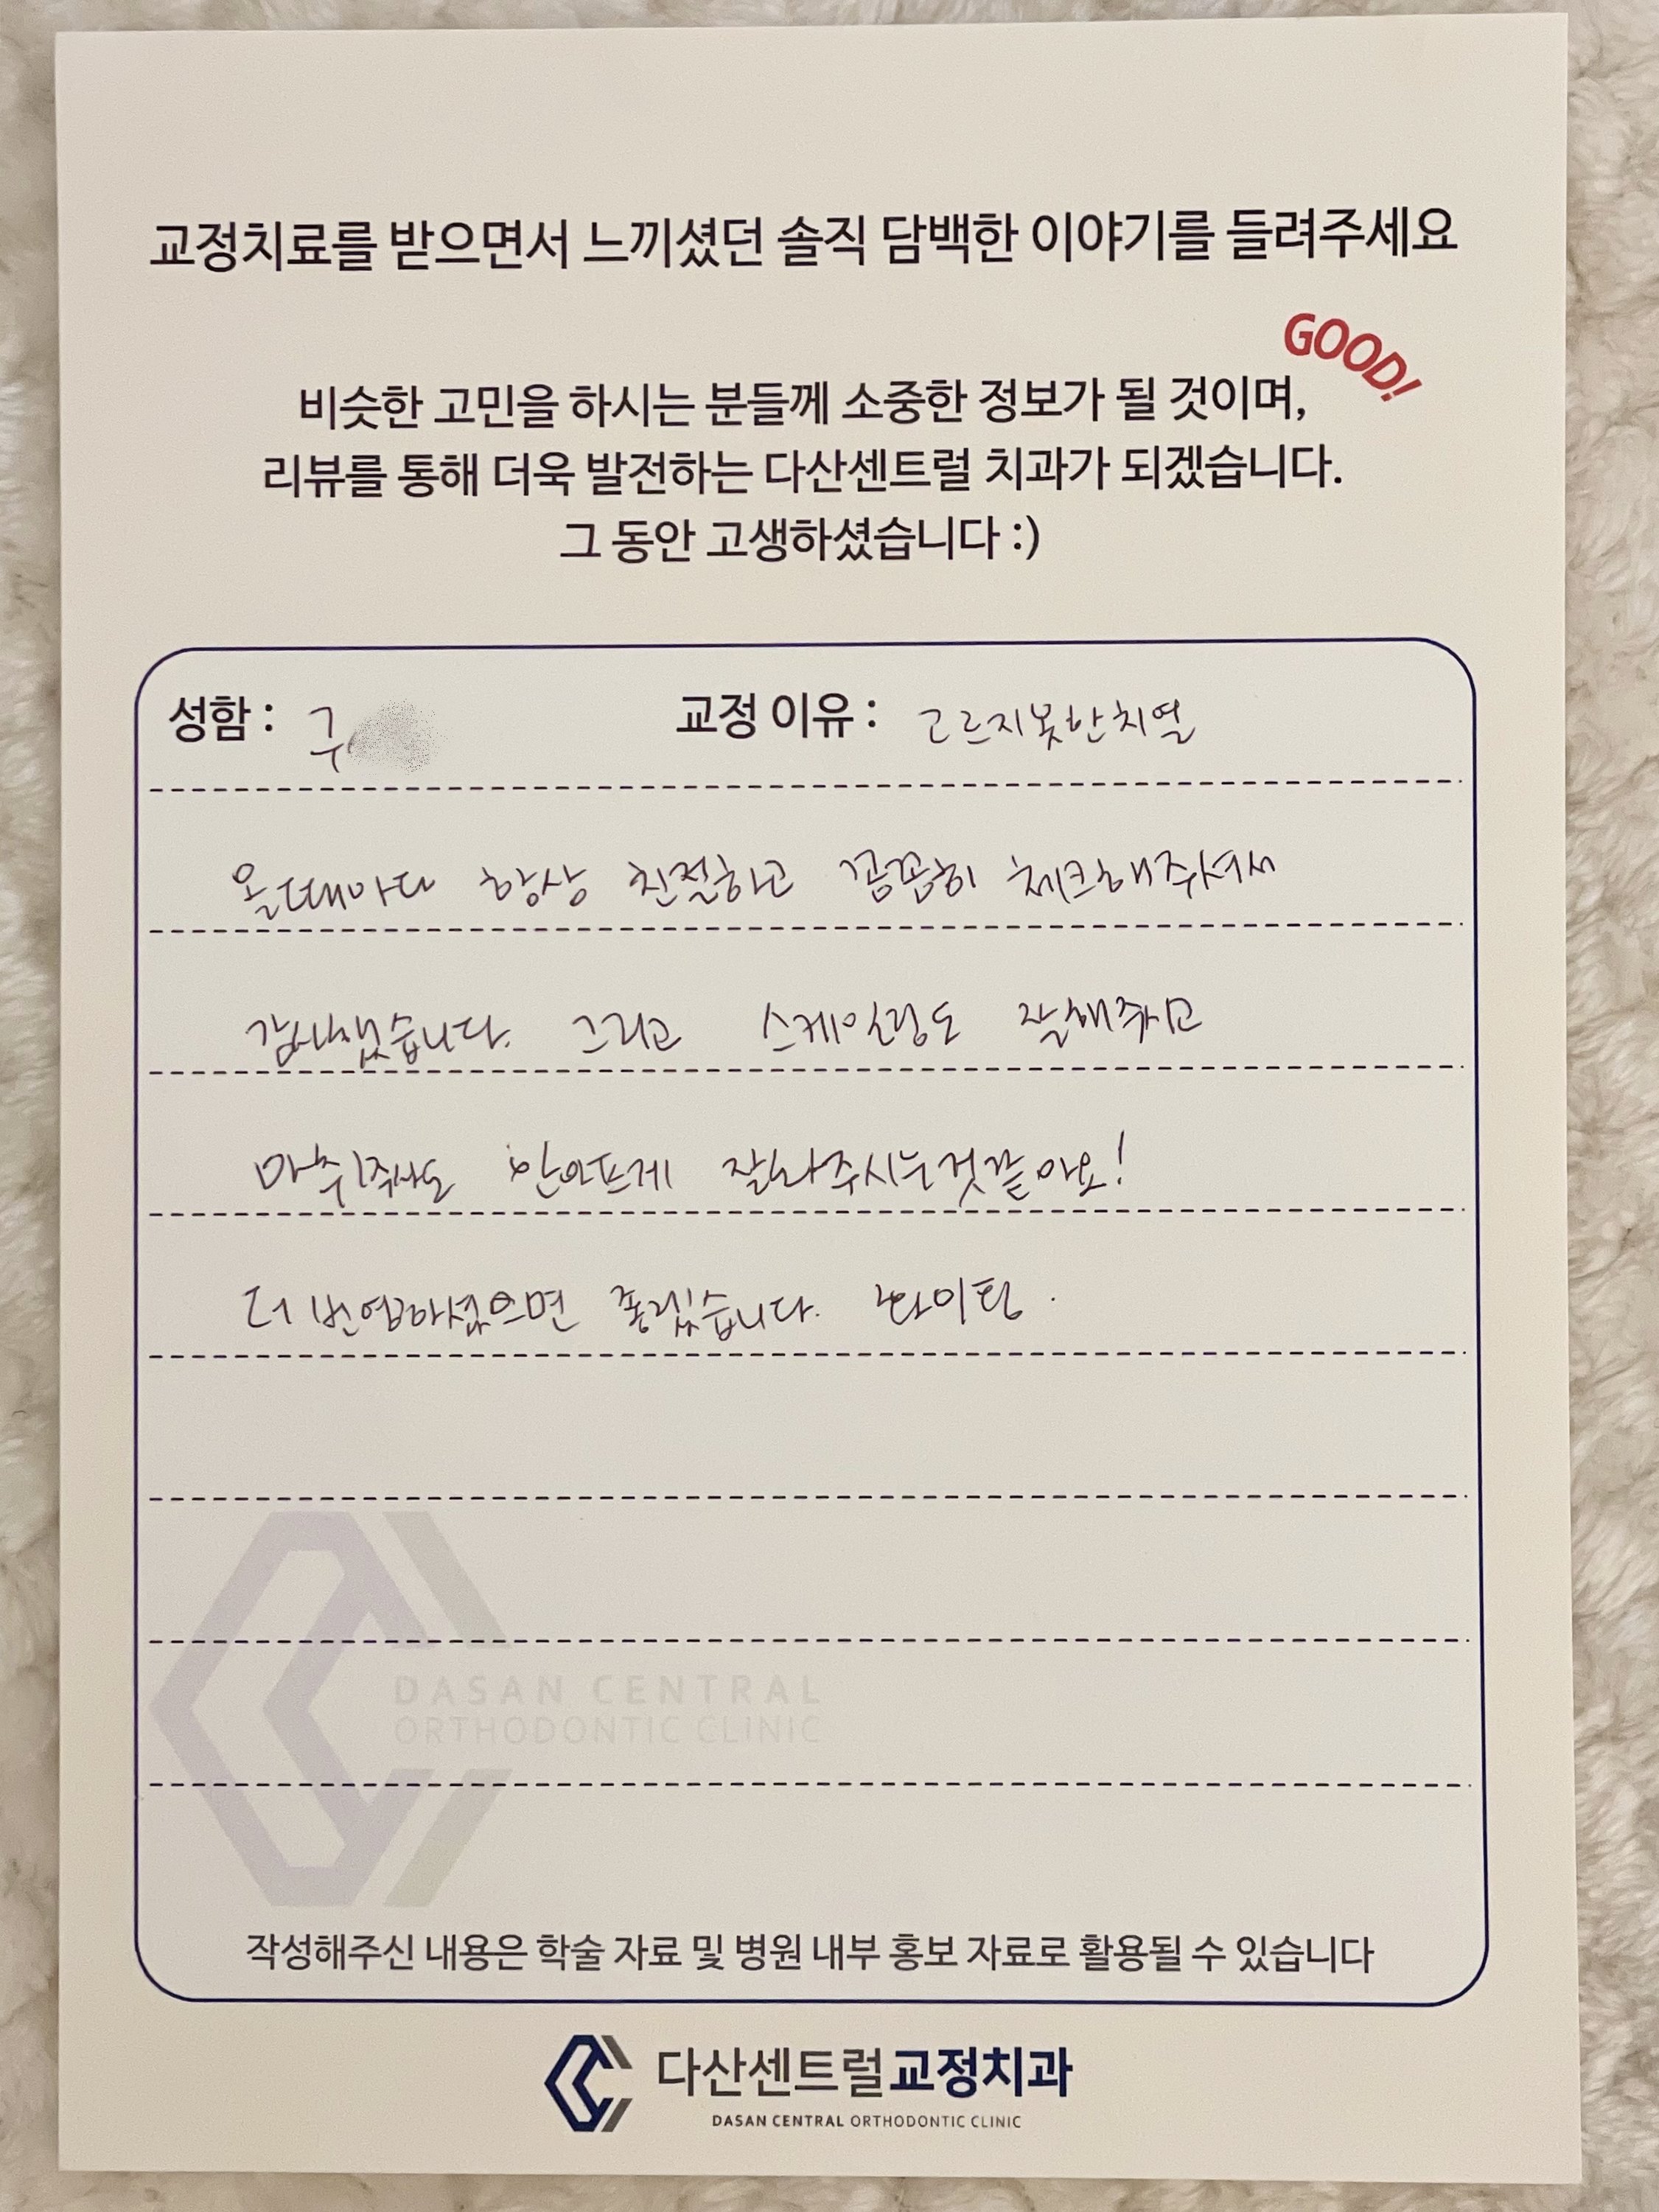 교정치료를 받으면서 느끼셨던 솔직 담백한 이야기를 들려주세요
GOOD!
비슷한 고민을 하시는 분들께 소중한 정보가 될 것이며,
리뷰를 통해 더욱 발전하는 다산센트럴 치과가 되겠습니다.
그 동안 고생하셨습니다 :)
성함 : 구 교정 이유 : 고르지못한치열
올때마다 항상 친절하고 꼼꼼히 체크해주셔서
감사했습니다. 그리고 스케일링도 잘해주시고
마취주사도 안아프게 잘놔주시는것같아요!
더 번엽하셨으면 좋겠습니다. 화이팅.
DASAN CENTRAL
ORTHODONTIC CLINIC
작성해주신 내용은 학술 자료 및 병원 내부 홍보 자료로 활용될 수 있습니다
다산센트럴교정치과
DASAN CENTRAL ORTHODONTIC CLINIC